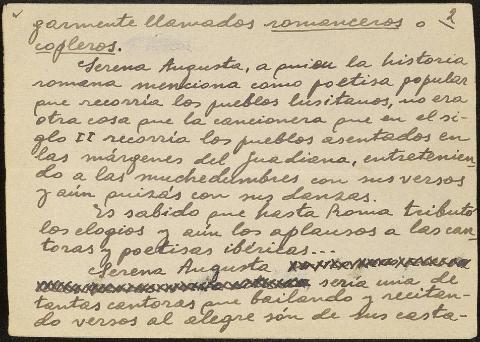 2
garmente llamados romanceros o
copleros.
Serena Augusta, a quien la historia
romana menciona como poetisa popular
que recorría los pueblos lusitanos, no era
otra cosa que la cancionera que en el si-
glo II recorría los pueblos asentados en
las márgenes del Guadiana, entretenien-
do a las muchedumbres con sus versos
y aún quizás con sus danzas.
Es sabido que hasta Roma tributó
los elogios y aún los aplausos a las can-
toras y poetisas ibéricas...
Serena Augusta
sería una de
tantas cantoras que bailando y recitan-
do versos al alegre són de sus casta-